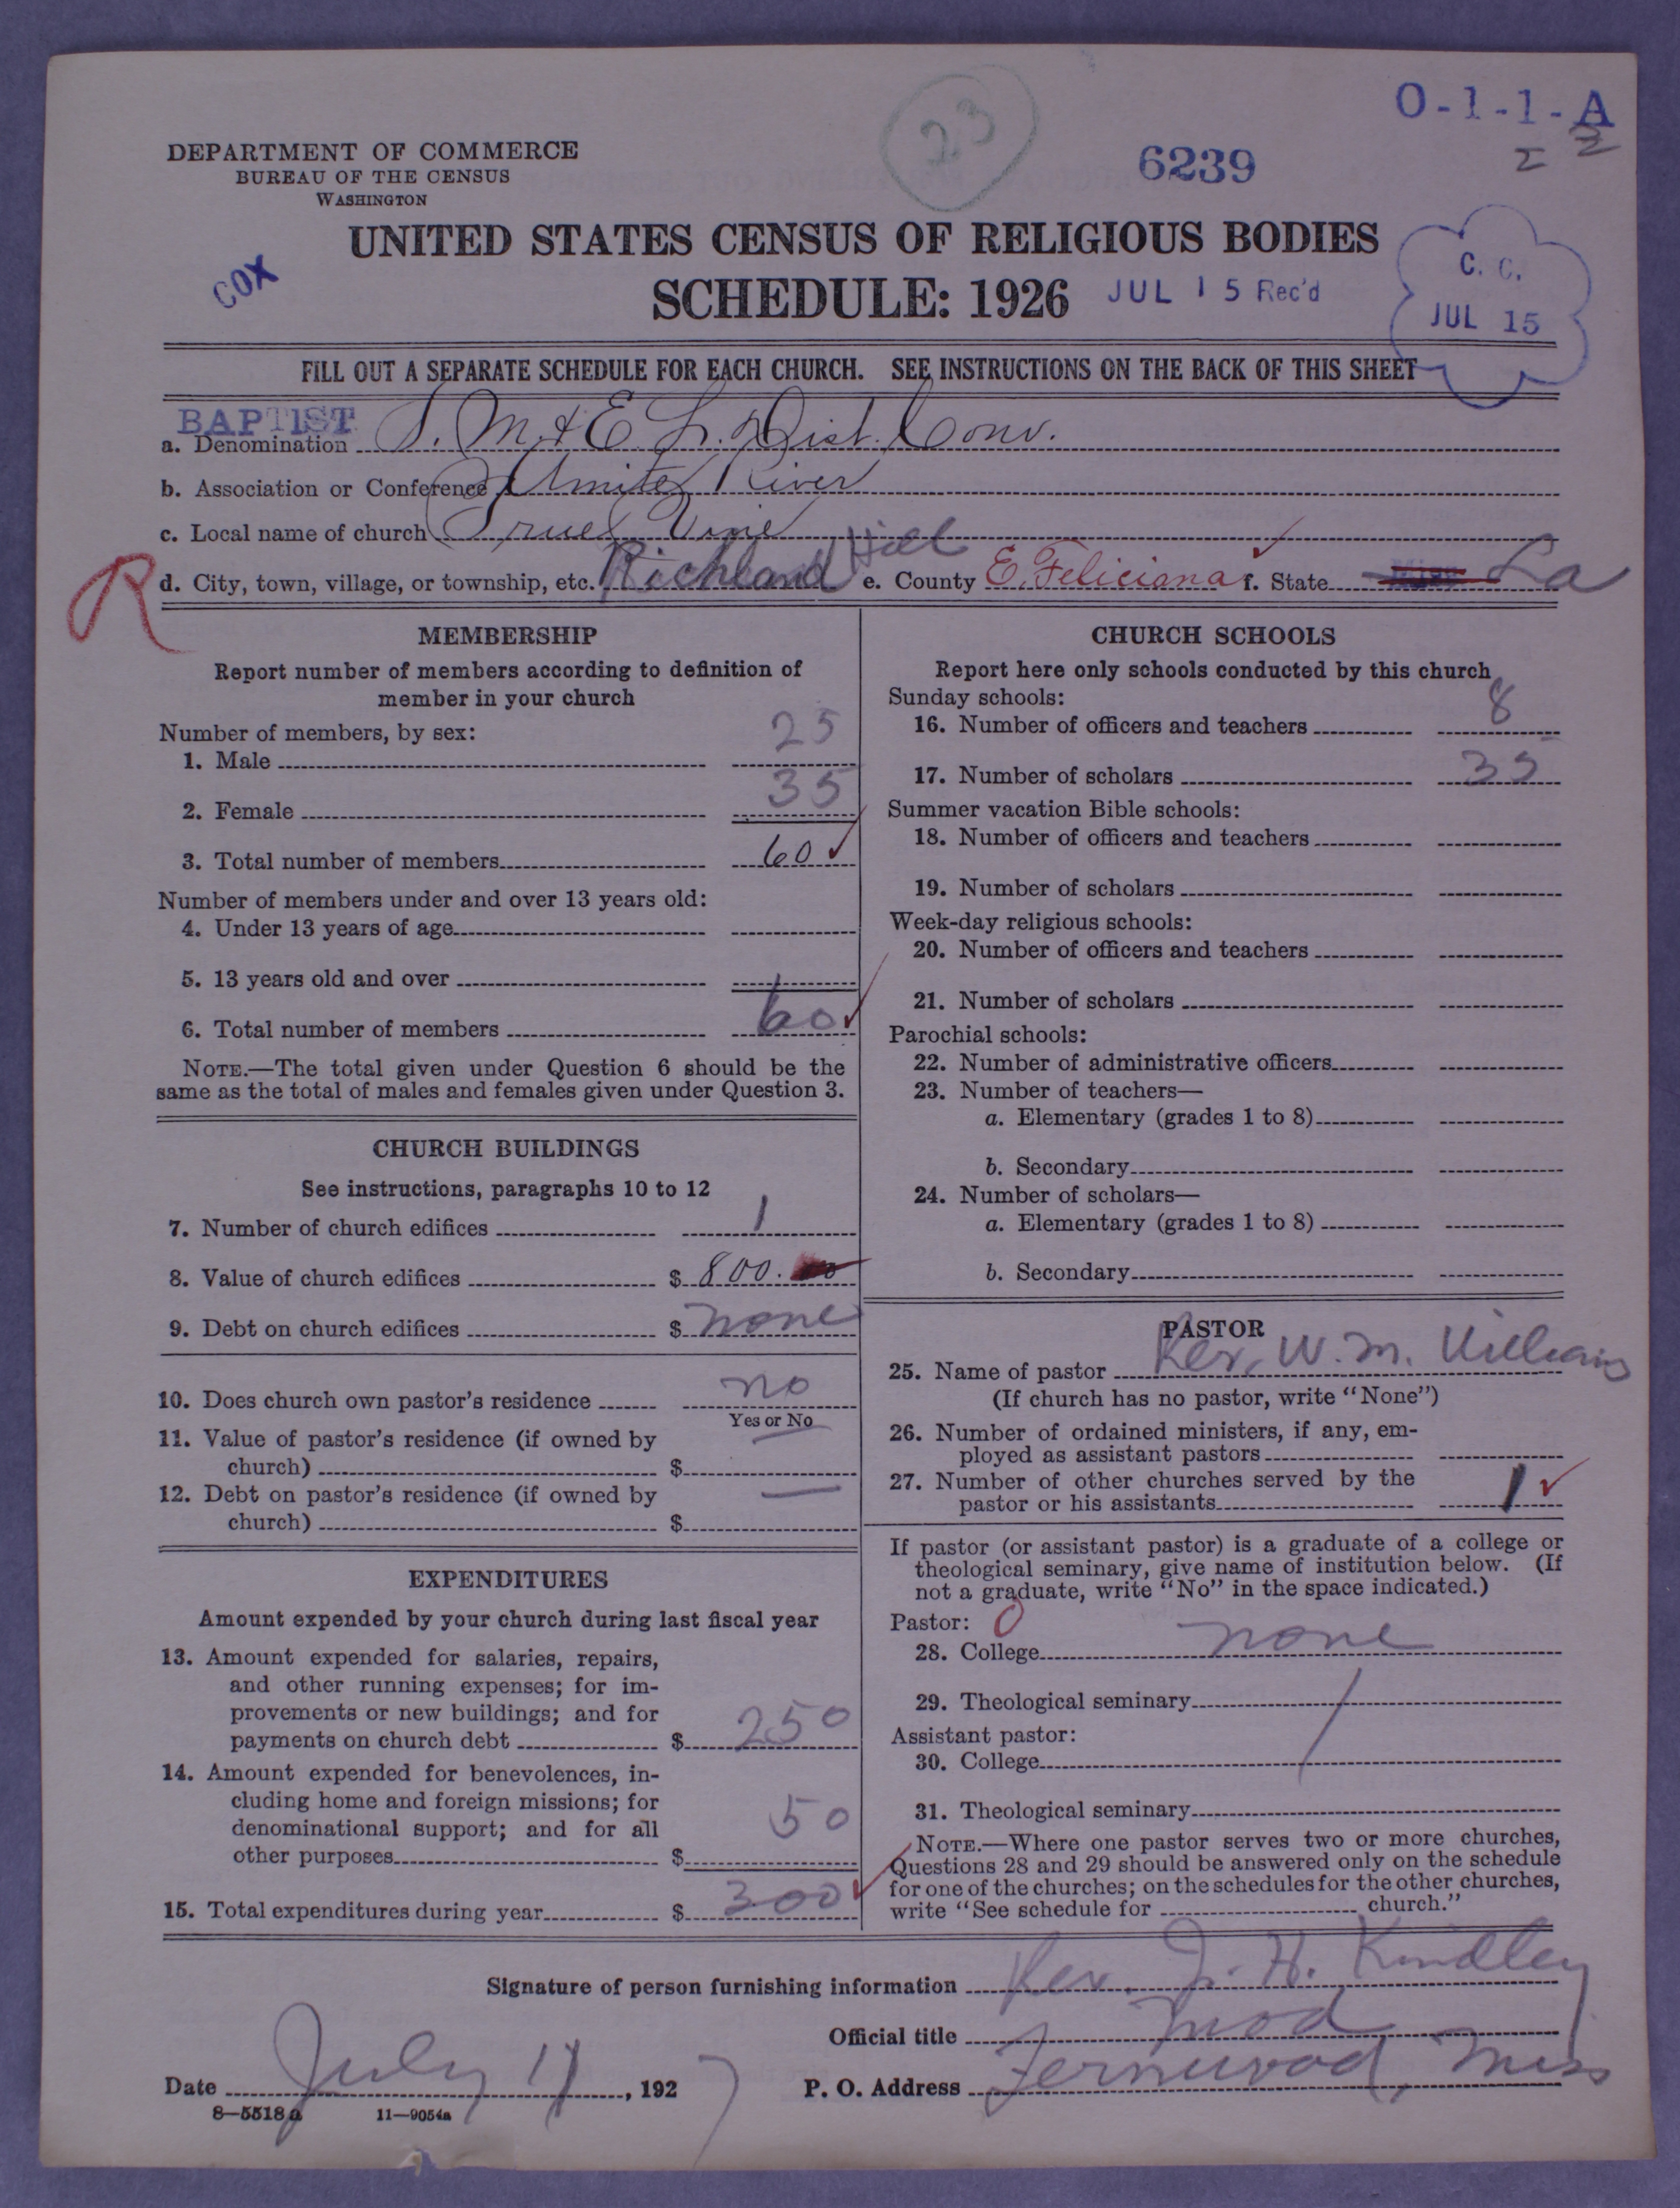 23
O-1-1-A
2
DEPARTMENT OF COMMERCE
BUREAU OF THE CENSUS
WASHINGTON
6239
UNITED STATES CENSUS OF RELIGIOUS BODIES
COX
SCHEDULE: 1926
JUL 15 Rec'd
C. C.
JUL 15
FILL OUT A SEPARATE SCHEDULE FOR EACH CHURCH. SEE INSTRUCTIONS ON THE BACK OF THIS SHEET
BAPTIST
a. Denomination S. M. & E. L. Dist. Conv.
b. Association or Conference Amite River
c. Local name of church True Vine
R
d. City, town, village, or township, etc. Richland Hill e. County E. Feliciana f. State Miss La
MEMBERSHIP
Report number of members according to definition of
member in your church
Number of members, by sex:
1. Male 25
2. Female 35
3. Total number of members 60
Number of members under and over 13 years old:
4. Under 13 years of age
5. 13 years old and over
6. Total number of members 60
NOTE.—The total given under Question 6 should be the
same as the total of males and females given under Question 3.
CHURCH BUILDINGS
See instructions, paragraphs 10 to 12
7. Number of church edifices 1
8. Value of church edifices $ 800.
9. Debt on church edifices $ none
10. Does church own pastor's residence no
Yes or No
11. Value of pastor's residence (if owned by
church) $ —
12. Debt on pastor's residence (if owned by
church) $ —
EXPENDITURES
Amount expended by your church during last fiscal year
13. Amount expended for salaries, repairs,
and other running expenses; for im-
provements or new buildings; and for
payments on church debt $ 250
14. Amount expended for benevolences, in-
cluding home and foreign missions; for
denominational support; and for all
other purposes $ 50
15. Total expenditures during year $ 300
CHURCH SCHOOLS
Report here only schools conducted by this church
Sunday schools:
16. Number of officers and teachers 8
17. Number of scholars 35
Summer vacation Bible schools:
18. Number of officers and teachers
19. Number of scholars
Week-day religious schools:
20. Number of officers and teachers
21. Number of scholars
Parochial schools:
22. Number of administrative officers
23. Number of teachers—
a. Elementary (grades 1 to 8)
b. Secondary
24. Number of scholars—
a. Elementary (grades 1 to 8)
b. Secondary
PASTOR
25. Name of pastor Rev. W. M. Williams
(If church has no pastor, write "None")
26. Number of ordained ministers, if any, em-
ployed as assistant pastors
27. Number of other churches served by the
pastor or his assistants 1
If pastor (or assistant pastor) is a graduate of a college or
theological seminary, give name of institution below. (If
not a graduate, write "No" in the space indicated.)
Pastor: 0
28. College none
29. Theological seminary
Assistant pastor:
30. College
31. Theological seminary
NOTE.—Where one pastor serves two or more churches,
Questions 28 and 29 should be answered only on the schedule
for one of the churches; on the schedules for the other churches,
write "See schedule for church."
Signature of person furnishing information Rev. J. H. Kindley
Official title Mod
Date July 11, 1927 P. O. Address Fernwood, Miss
8—5518 a 11—9054a